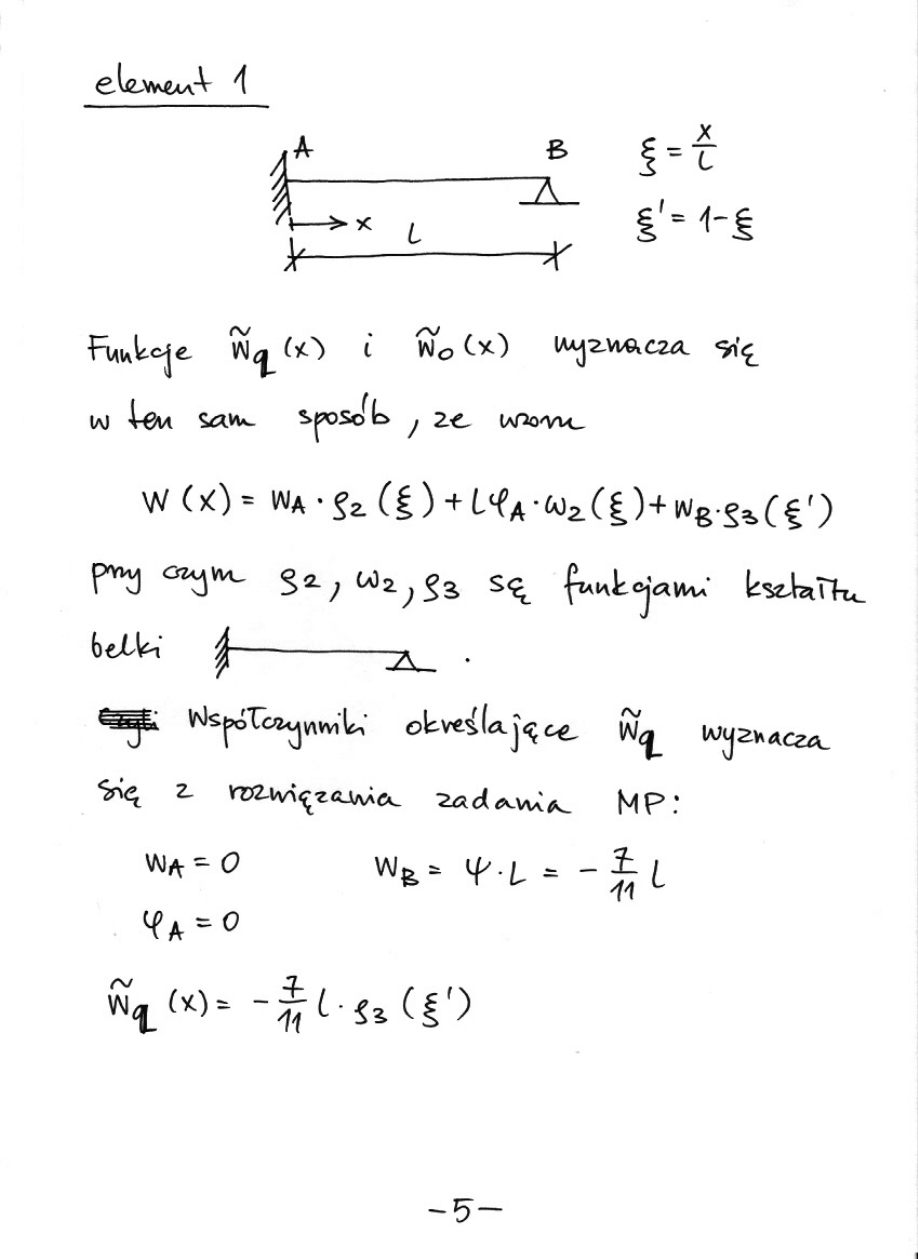 element 1
A B ξ = x/L
x L ξ' = 1-ξ
Funkcje w̃q (x) i w̃o (x) wyznacza się
w ten sam sposób, ze wzoru
w (x) = wA · ρ2 (ξ) + LφA · ω2 (ξ) + wB · ρ3 (ξ')
przy czym ρ2, ω2, ρ3 są funkcjami kształtu
belki .
Współczynniki określające w̃q wyznacza
się z rozwiązania zadania MP:
wA = 0 wB = ψ · L = - 7/11 L
φA = 0
w̃q (x) = - 7/11 L · ρ3 (ξ')
-5-